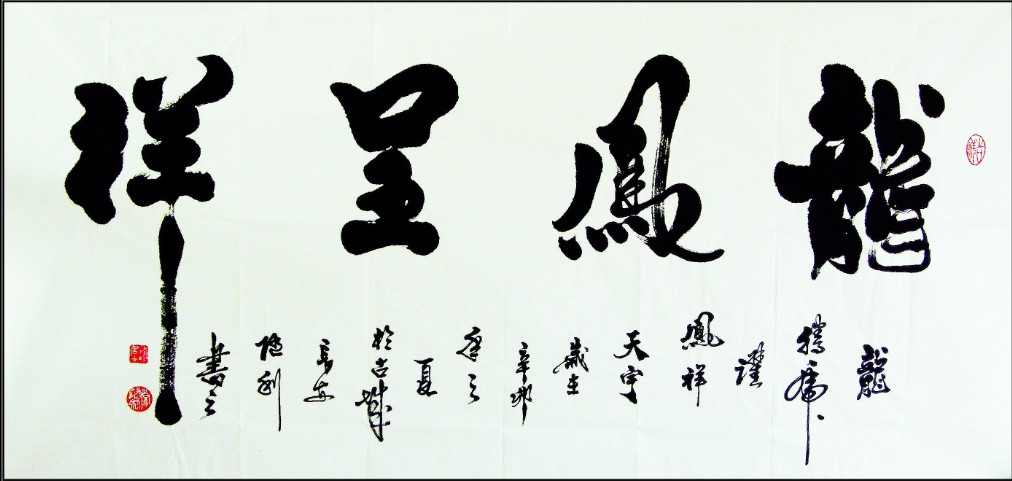 龍鳳呈祥
龍
騰虎
躍
鳳祥
天宇
歲在
辛卯
年之
夏
於古城
長安
書之